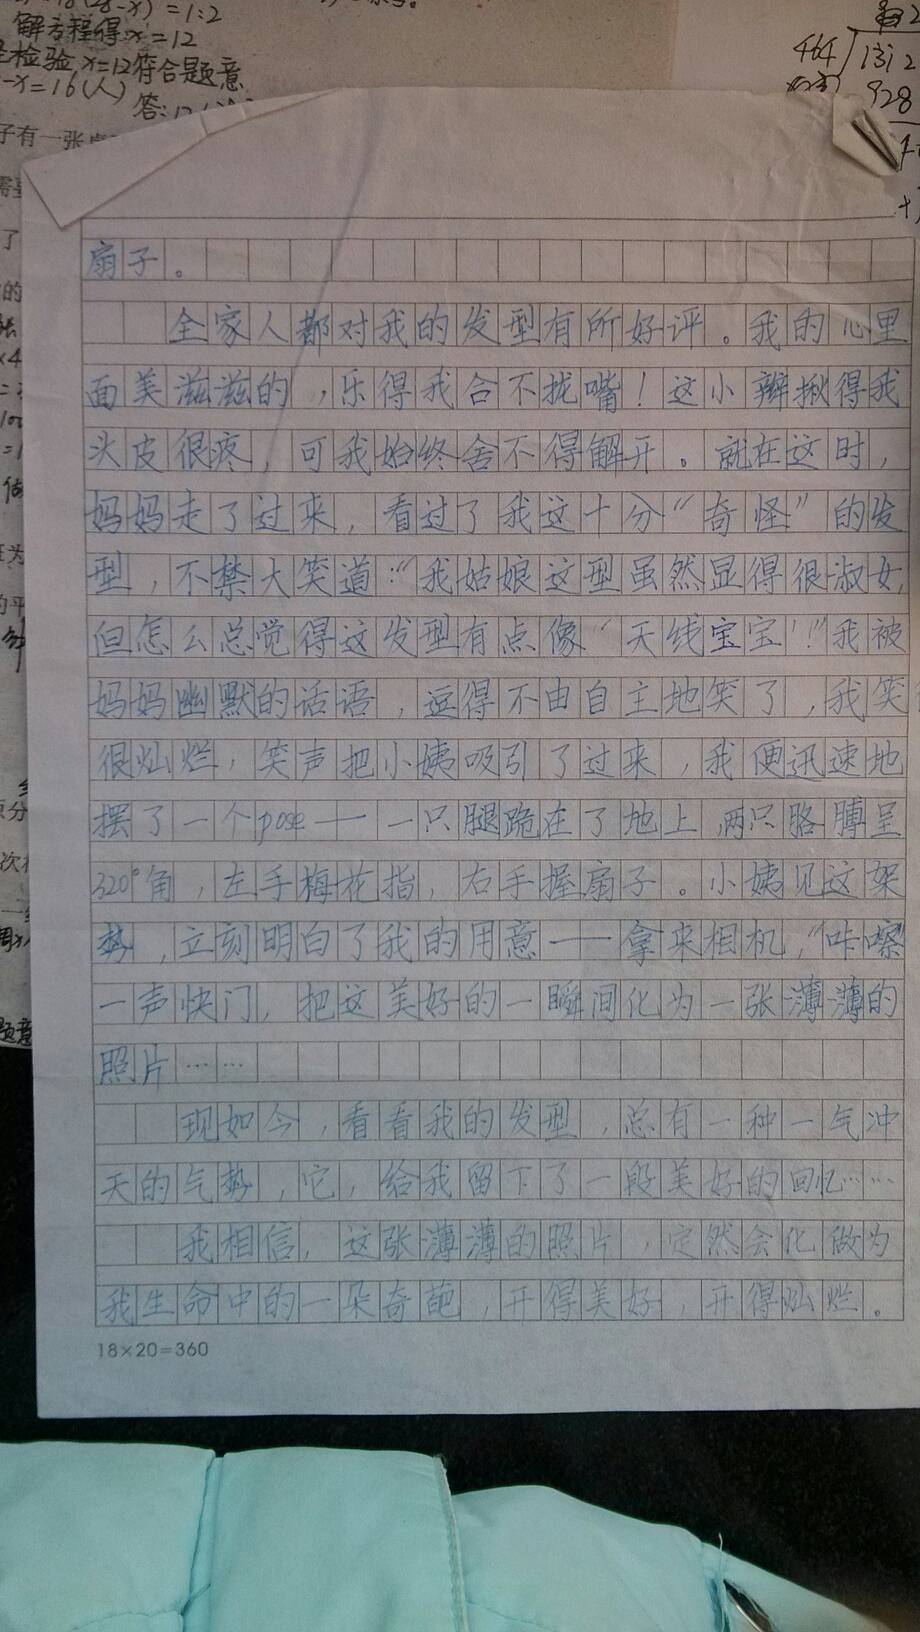 解方程得:x=12
检验x=12符合题意
-x=16(人)
464
1312
928
子有一张
扇子。
全家人都对我的发型有所好评。我的心里
面美滋滋的,乐得我合不拢嘴!这小辫揪得我
头皮很疼,可我始终舍不得解开。就在这时,
妈妈走了过来,看过了我这十分“奇怪”的发
型,不禁大笑道:“我姑娘这型虽然显得很淑女,
但怎么总觉得这发型有点像‘天线宝宝’!”我被
妈妈幽默的话语,逗得不由自主地笑了,我笑
很灿烂,笑声把小姨吸引了过来,我便迅速地
摆了一个pose——一只腿跪在了地上,两只胳膊呈
320°角,左手梅花指,右手握扇子。小姨见这架
势,立刻明白了我的用意——拿来相机,“咔嚓
一声快门,把这美好的一瞬间化为一张薄薄的
照片……
现如今,看看我的发型,总有一种一气冲
天的气势,它,给我留下了一段美好的回忆……
我相信,这张薄薄的照片,定然会化做为
我生命中的一朵奇葩,开得美好,开得灿烂。
18×20=360